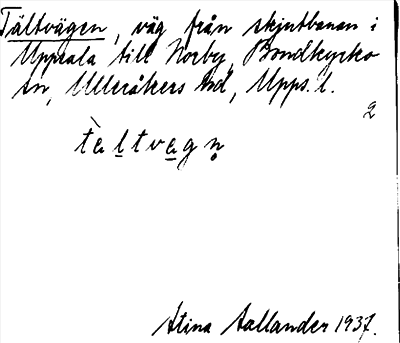 Tältvägen, väg från skjutbanan i
Uppsala till Norby, Bondkyrko
sn, Ulleråkers hd, Upps. l.
2
tὲltvegn̥
Stina Aallander 1937.